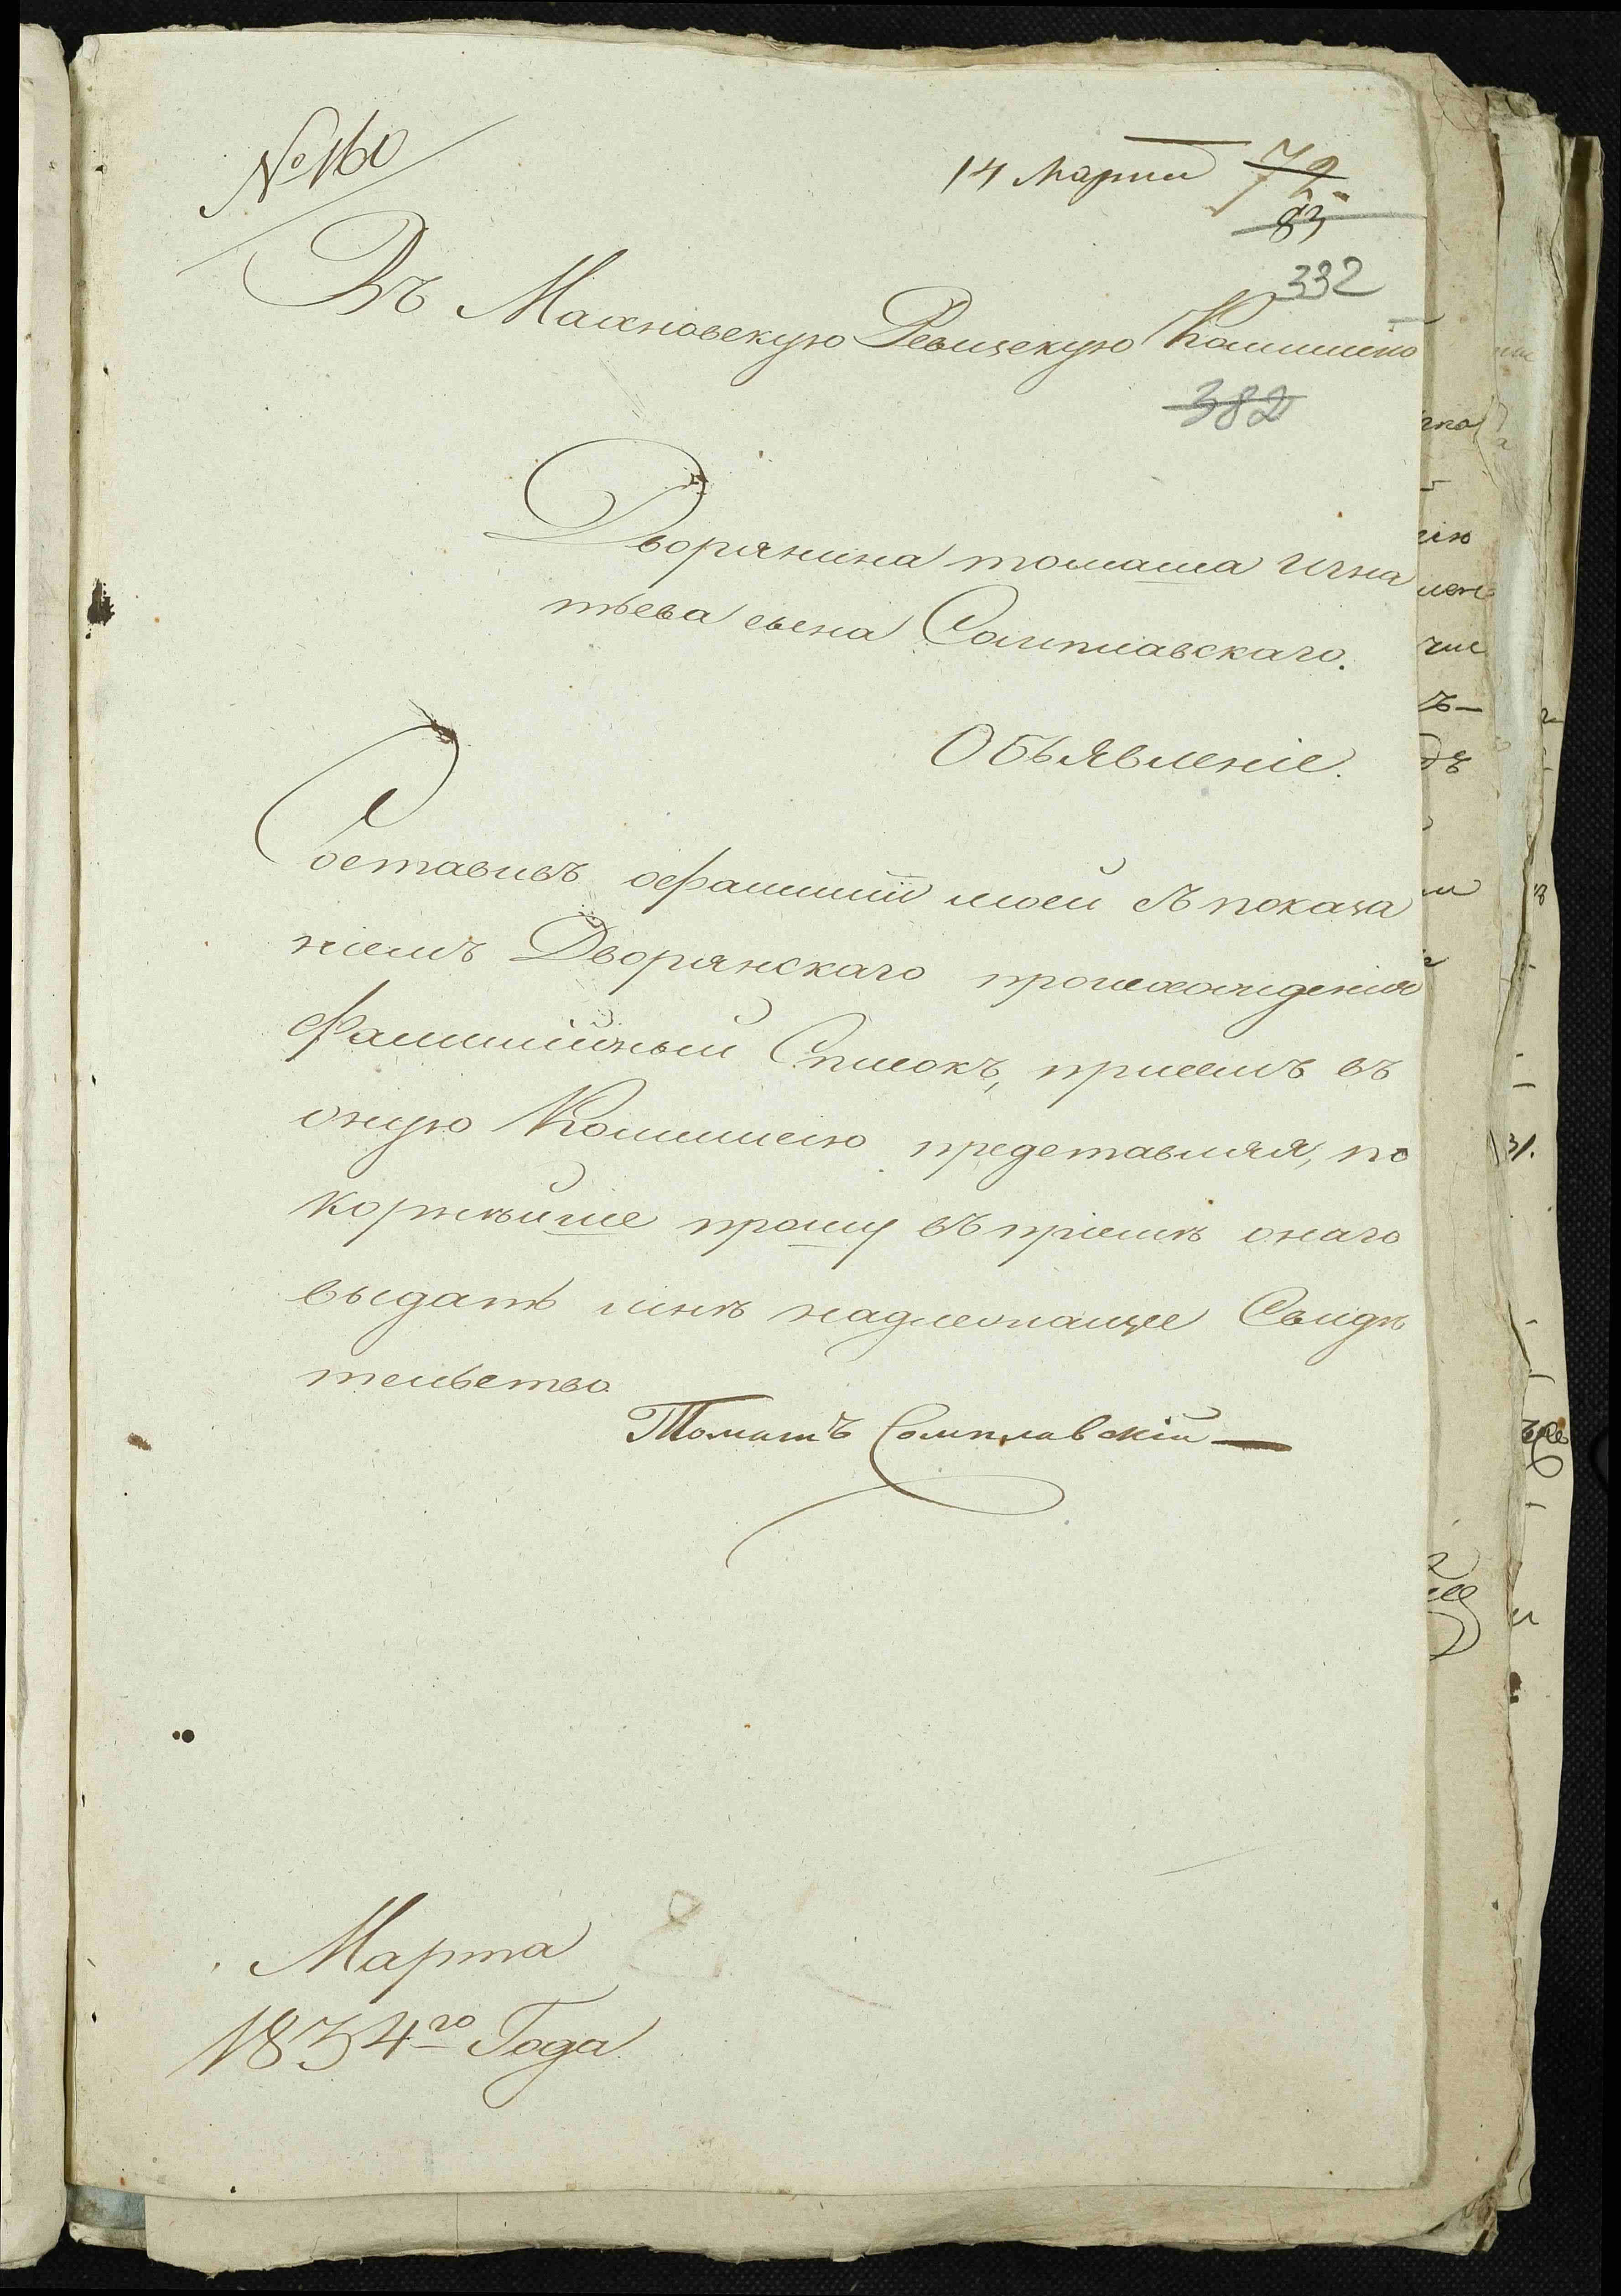 № 160
14 Марта 72
83
332
Въ Махновскую Ревизскую Коммисію
382
Дворянина томаша Игна
тьева сына Сомплавскаго.
Объявленіе.
Составивъ офамиліи моей съ показа
ніемъ Дворянскаго происхожденія
Фамилійный Списокъ, присемъ въ
оную Коммисію представляя, по
корнѣйше прошу въ пріемѣ онаго
выдать мнѣ надлежащее Свидѣ
тельство.
Томашъ Сомплавскій
Марта
1834го Года